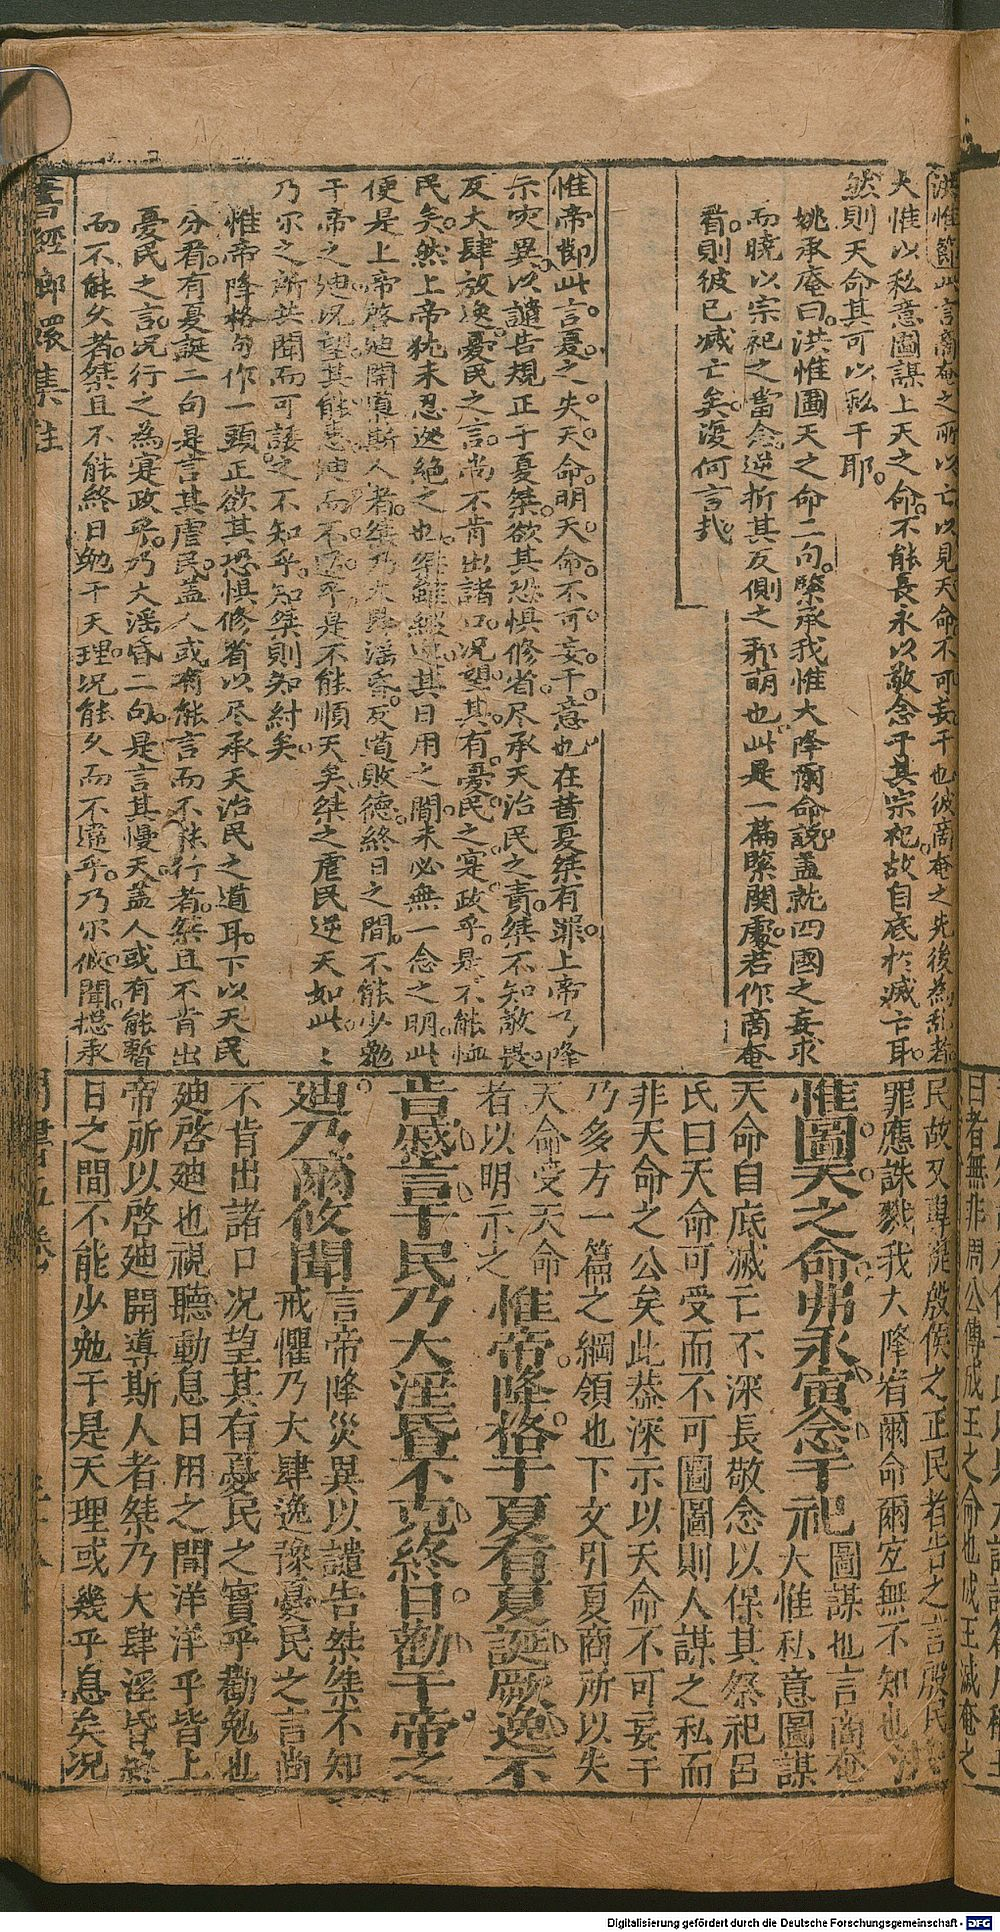 洪惟節此言商奄之所以亡以見天命不可妄干也彼商奄之先後為乱者
大惟以私意圖謀上天之命不能長永以敬念于其宗祀故自底於滅亡耳
然則天命其可以私干耶
姚承庵曰洪惟圖天之命二句緊承我惟大降爾命說盖就四國之妄求
而曉以宗祀之當念逆折其反側之邪萌也此是一篇緊関處若作商奄
看則彼已滅亡矣復何言哉
惟帝節此言夏之失天命明天命不可妄干意也在昔夏桀有罪上帝乃降
示灾異以譴告規正于夏桀欲其恐惧修省尽承天治民之責桀不知敬畏
反大肆放逸憂民之言尚不肯出諸口况望其有憂民之寔政乎是不能恤
民矣然上帝犹未忍遽絶之也桀雖縱逆其日用之間未必無一念之明此
便是上帝啓廸開導斯人者桀乃大肆滛昏反道敗德終日之間不能少勉
于帝之廸况望其能惠廸而不違乎是不能順天矣桀之虐民逆天如此
乃尔之所共聞而可諉之不知乎知桀則知紂矣
惟帝降格句作一頭正欲其恐惧修省以尽承天治民之道耳下以天民
分看有夏誕二句是言其虐民盖人或有能言而不能行者桀且不肯出
憂民之言况行之為寔政乎乃大滛昏二句是言其慢天盖人或有能暫
而不能久者桀且不能終日勉于天理况能久而不違乎乃尔攸聞揔承
書經郷嬛集註
民故又專提殷侯之正民者告之言殷民
罪應誅戮我大降宥爾命爾宜無不知也
惟圖天之命弗永寅念于祀圖謀也言商奄
大惟私意圖謀
天命自底滅亡不深長敬念以保其祭祀呂
氏曰天命可受而不可圖圖則人謀之私而
非天命之公矣此葢深示以天命不可妄干
乃多方一篇之綱領也下文引夏商所以失
天命受天命
者以明示之惟帝降格于夏有夏誕厥逸不
肯慼言于民乃大淫昏不克終日勸于帝之
廸乃爾攸聞言帝降災異以譴告桀桀不知
戒懼乃大肆逸豫憂民之言尚
不肯出諸口况望其有憂民之實乎勸勉也
廸啓廸也視聽動息日用之間洋洋乎皆上
帝所以啓廸開導斯人者桀乃大肆淫昏終
日之間不能少勉于是天理或幾乎息矣况
周書五卷
日者無非周公傳成王之命也成王滅奄之
Digitalisierung gefördert durch die Deutsche Forschungsgemeinschaft - DFG